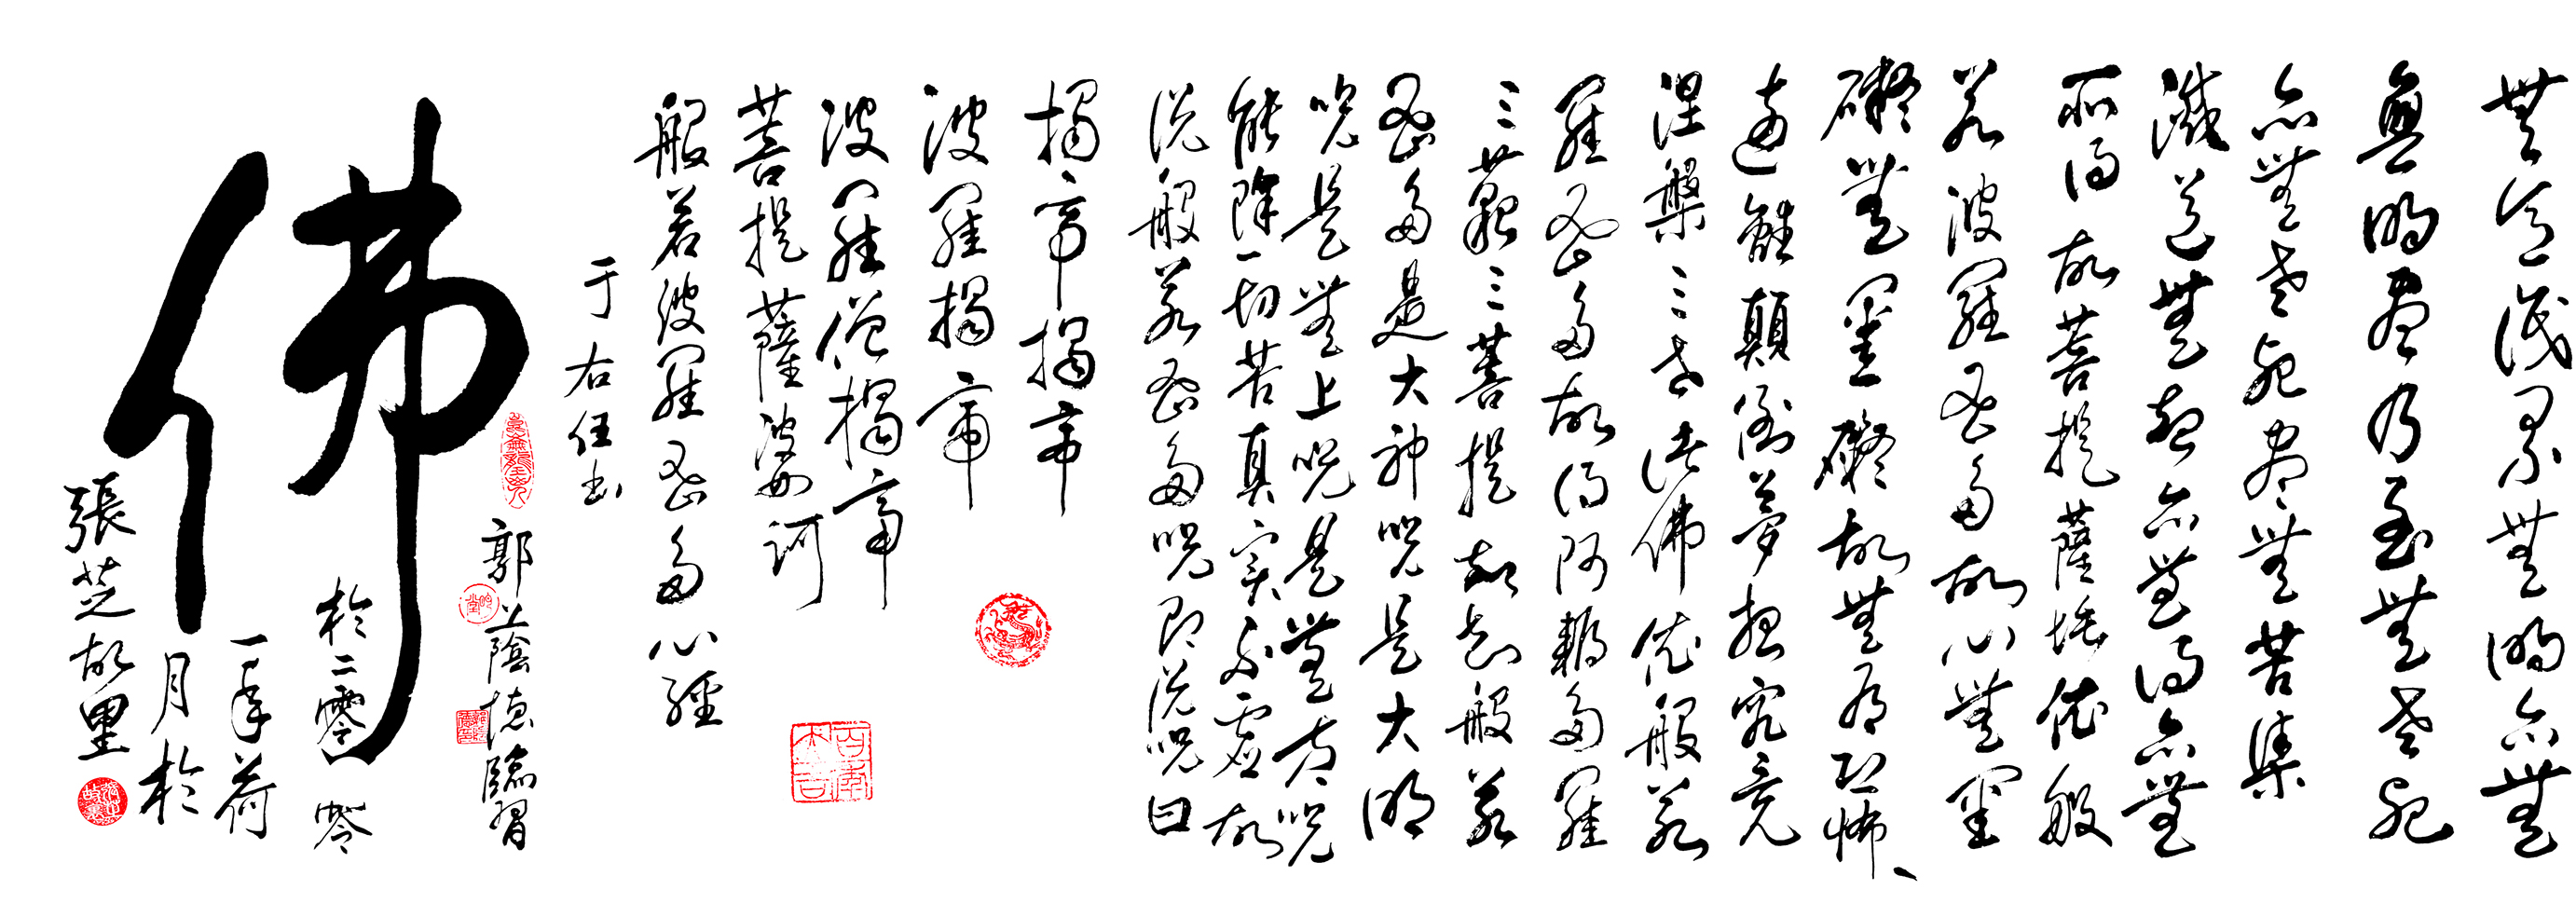 無意識界無明亦無
無明盡乃至無老死
亦無老死盡無苦集
滅道無智亦無得以無
所得故菩提薩埵依般
若波羅蜜多故心無罣
礙無罣礙故無有恐怖、
遠離顛倒夢想究竟
涅槃三世諸佛依般若
羅蜜多故得阿耨多羅
三藐三菩提故知般若
蜜多是大神咒是大明
咒是無上咒是無等咒
能除一切苦真实不虛故
说般若蜜多咒即说咒曰
揭帝揭帝
波羅揭帝
波羅僧揭帝
菩提薩婆訶
般若波羅蜜多心經
于右任书
佛
郭蔭德臨習
於二零一零
年荷
月於
張芝故里